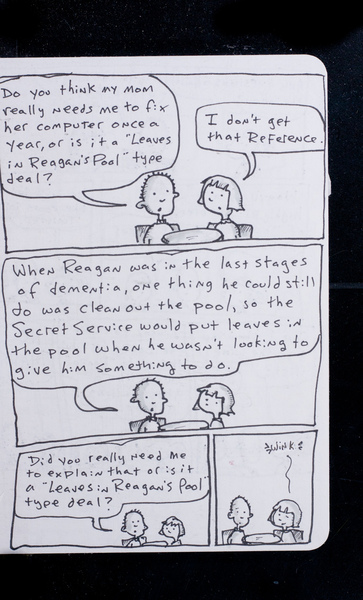 Do you think my mom
really needs me to fix
her computer once a
year, or is it a "Leaves
in Reagan's Pool" type
deal?
I don't get
that Reference.
When Reagan was in the last stages
of dementia, one thing he could still
do was clean out the pool, so the
Secret Service would put leaves in
the pool when he wasn't looking to
give him something to do.
Did you really need me
to explain that or is it
a "Leaves in Reagan's Pool"
type deal?
Wink